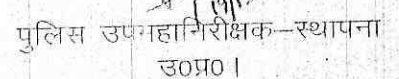 पुलिस उपमहानिरीक्षक–स्थापना
उ०प्र० ।